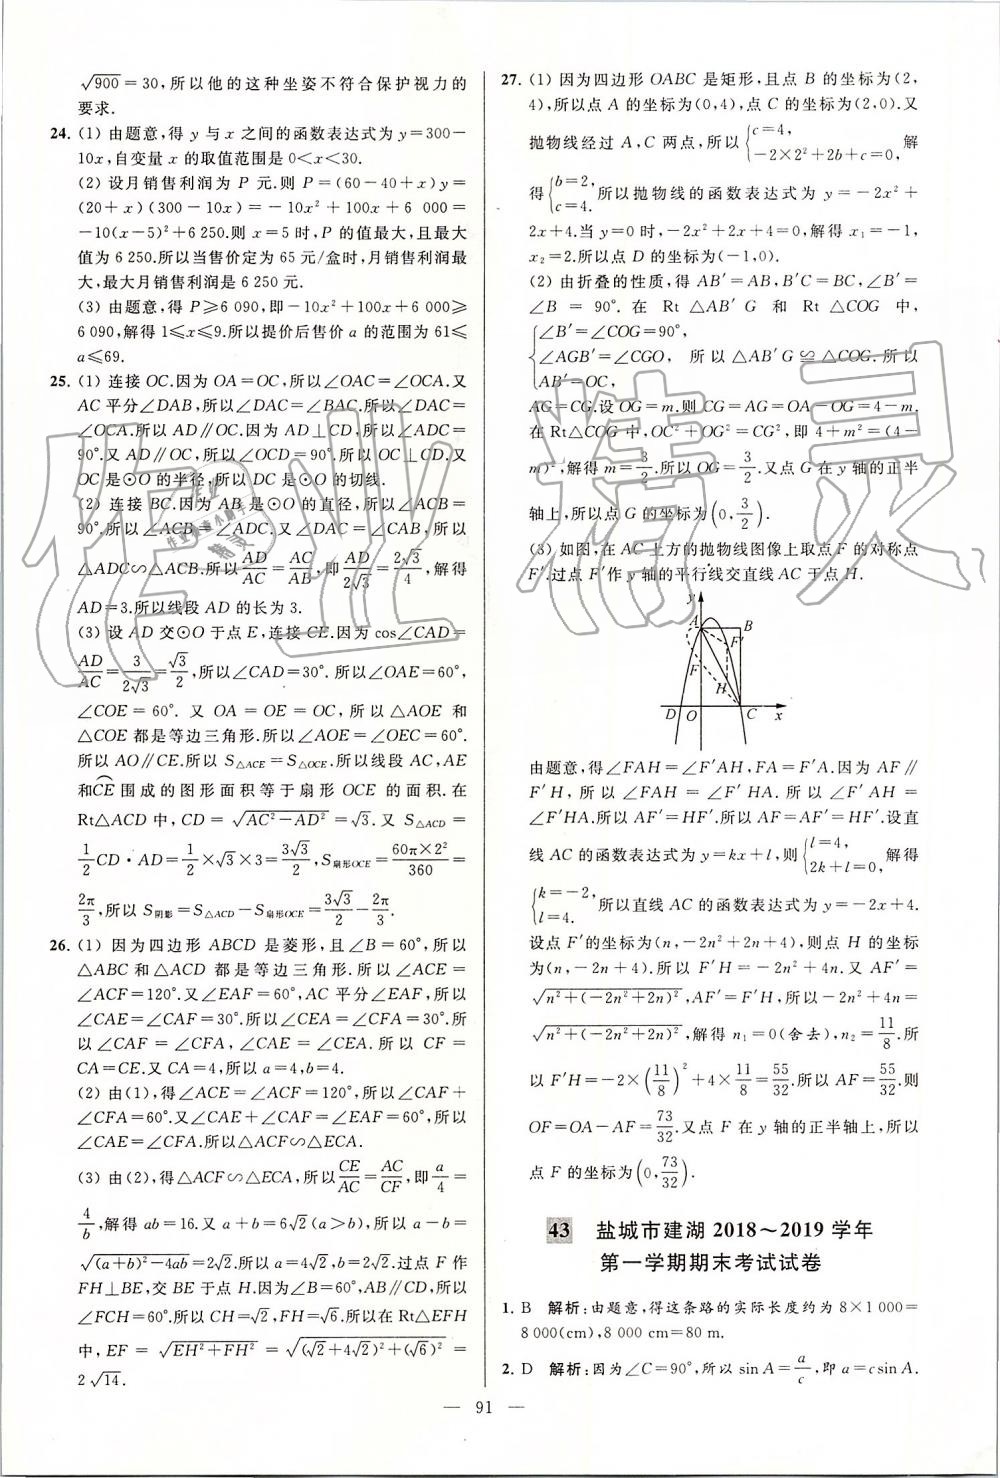 √900=30,所以他的这种坐姿不符合保护视力的
要求.
24. (1) 由题意,得 y 与 x 之间的函数表达式为 y=300-
10x,自变量 x 的取值范围是 0<x<30.
(2) 设月销售利润为 P 元.则 P=(60-40+x)y=
(20+x)(300-10x)=-10x²+100x+6 000=
-10(x-5)²+6 250.则 x=5 时,P 的值最大,且最大
值为 6 250.所以当售价定为 65 元/盒时,月销售利润最
大,最大月销售利润是 6 250 元.
(3) 由题意,得 P≥6 090,即-10x²+100x+6 000≥
6 090,解得 1≤x≤9.所以提价后售价 a 的范围为 61≤
a≤69.
25. (1) 连接 OC.因为 OA=OC,所以∠OAC=∠OCA.又
AC 平分∠DAB,所以∠DAC=∠BAC.所以∠DAC=
∠OCA.所以 AD∥OC.因为 AD⊥CD,所以∠ADC=
90°.又 AD∥OC,所以∠OCD=90°.所以 OC⊥CD.又
OC 是⊙O 的半径,所以 DC 是⊙O 的切线.
(2) 连接 BC.因为 AB 是⊙O 的直径,所以∠ACB=
90°.所以∠ACB=∠ADC.又∠DAC=∠CAB,所以
△ADC∽△ACB.所以AD/AC=AC/AB,即AD/2√3=2√3/4,解得
AD=3.所以线段 AD 的长为 3.
(3) 设 AD 交⊙O 于点 E,连接 CE.因为 cos∠CAD=
AD/AC=3/2√3=√3/2,所以∠CAD=30°.所以∠OAE=60°,
∠COE=60°.又 OA=OE=OC,所以△AOE 和
△COE 都是等边三角形.所以∠AOE=∠OEC=60°.
所以 AO∥CE.所以 S△ACE=S△OCE.所以线段 AC,AE
和⌒CE 围成的图形面积等于扇形 OCE 的面积.在
Rt△ACD 中,CD=√(AC²-AD²)=√3.又 S△ACD=
1/2CD·AD=1/2×√3×3=3√3/2,S扇形OCE=60π×2²/360=
2π/3,所以 S阴影=S△ACD-S扇形OCE=3√3/2-2π/3.
26. (1) 因为四边形 ABCD 是菱形,且∠B=60°,所以
△ABC 和△ACD 都是等边三角形.所以∠ACE=
∠ACF=120°.又∠EAF=60°,AC 平分∠EAF,所以
∠CAE=∠CAF=30°.所以∠CEA=∠CFA=30°.所
以∠CAF=∠CFA,∠CAE=∠CEA.所以 CF=
CA=CE.又 CA=4,所以 a=4,b=4.
(2) 由(1),得∠ACE=∠ACF=120°,所以∠CAF+
∠CFA=60°.又∠CAE+∠CAF=∠EAF=60°,所以
∠CAE=∠CFA.所以△ACF∽△ECA.
(3) 由(2),得△ACF∽△ECA,所以CE/AC=AC/CF,即a/4=
4/b,解得 ab=16.又 a+b=6√2(a>b),所以 a-b=
√((a+b)²-4ab)=2√2.所以 a=4√2,b=2√2.过点 F 作
FH⊥BE,交 BE 于点 H.因为∠B=60°,所以
∠FCH=60°.所以 CH=√2,FH=√6.所以在 Rt△EFH
中,EF=√(EH²+FH²)=√((√2+4√2)²+(√6)²)=
2√14.
27. (1) 因为四边形 OABC 是矩形,且点 B 的坐标为(2,
4),所以点 A 的坐标为(0,4),点 C 的坐标为(2,0).又
抛物线经过 A,C 两点,所以{c=4,
-2×2²+2b+c=0, 解
得{b=2,
c=4. 所以抛物线的函数表达式为 y=-2x²+
2x+4.当 y=0 时,-2x²+2x+4=0,解得 x₁=-1,
x₂=2.所以点 D 的坐标为(-1,0).
(2) 由折叠的性质,得 AB′=AB,B′C=BC,∠B′=
∠B=90°.在 Rt△AB′G 和 Rt△COG 中,
{∠B′=∠COG=90°,
∠AGB′=∠CGO, 所以△AB′G≌△COG.所以
AB′=OC,
AG=CG.设 OG=m.则 CG=AG=OA-OG=4-m.
在 Rt△COG 中,OC²+OG²=CG²,即 4+m²=(4-
m)²,解得 m=3/2.所以 OG=3/2.又点 G 在 y 轴的正半
轴上,所以点 G 的坐标为(0,3/2).
(3) 如图,在 AC 上方的抛物线图像上取点 F 的对称点
F′.过点 F′作 y 轴的平行线交直线 AC 于点 H.
y
A B
F′
F
H
D O C x
由题意,得∠FAH=∠F′AH,FA=F′A.因为 AF∥
F′H,所以∠FAH=∠F′HA.所以∠F′AH=
∠F′HA.所以 AF′=HF′.所以 AF=AF′=HF′.设直
线 AC 的函数表达式为 y=kx+l,则{l=4,
2k+l=0, 解得
{k=-2,
l=4. 所以直线 AC 的函数表达式为 y=-2x+4.
设点 F′的坐标为(n,-2n²+2n+4),则点 H 的坐标
为(n,-2n+4).所以 F′H=-2n²+4n.又 AF′=
√(n²+(-2n²+2n)²),AF′=F′H,所以-2n²+4n=
√(n²+(-2n²+2n)²),解得 n₁=0(舍去),n₂=11/8.所
以 F′H=-2×(11/8)²+4×11/8=55/32.所以 AF=55/32.则
OF=OA-AF=73/32.又点 F 在 y 轴的正半轴上,所以
点 F 的坐标为(0,73/32).
43 盐城市建湖 2018～2019 学年
第一学期期末考试试卷
1. B 解析:由题意,得这条路的实际长度约为 8×1 000=
8 000(cm),8 000 cm=80 m.
2. D 解析:因为∠C=90°,所以 sin A=a/c,即 a=csin A.
— 91 —
作业精灵